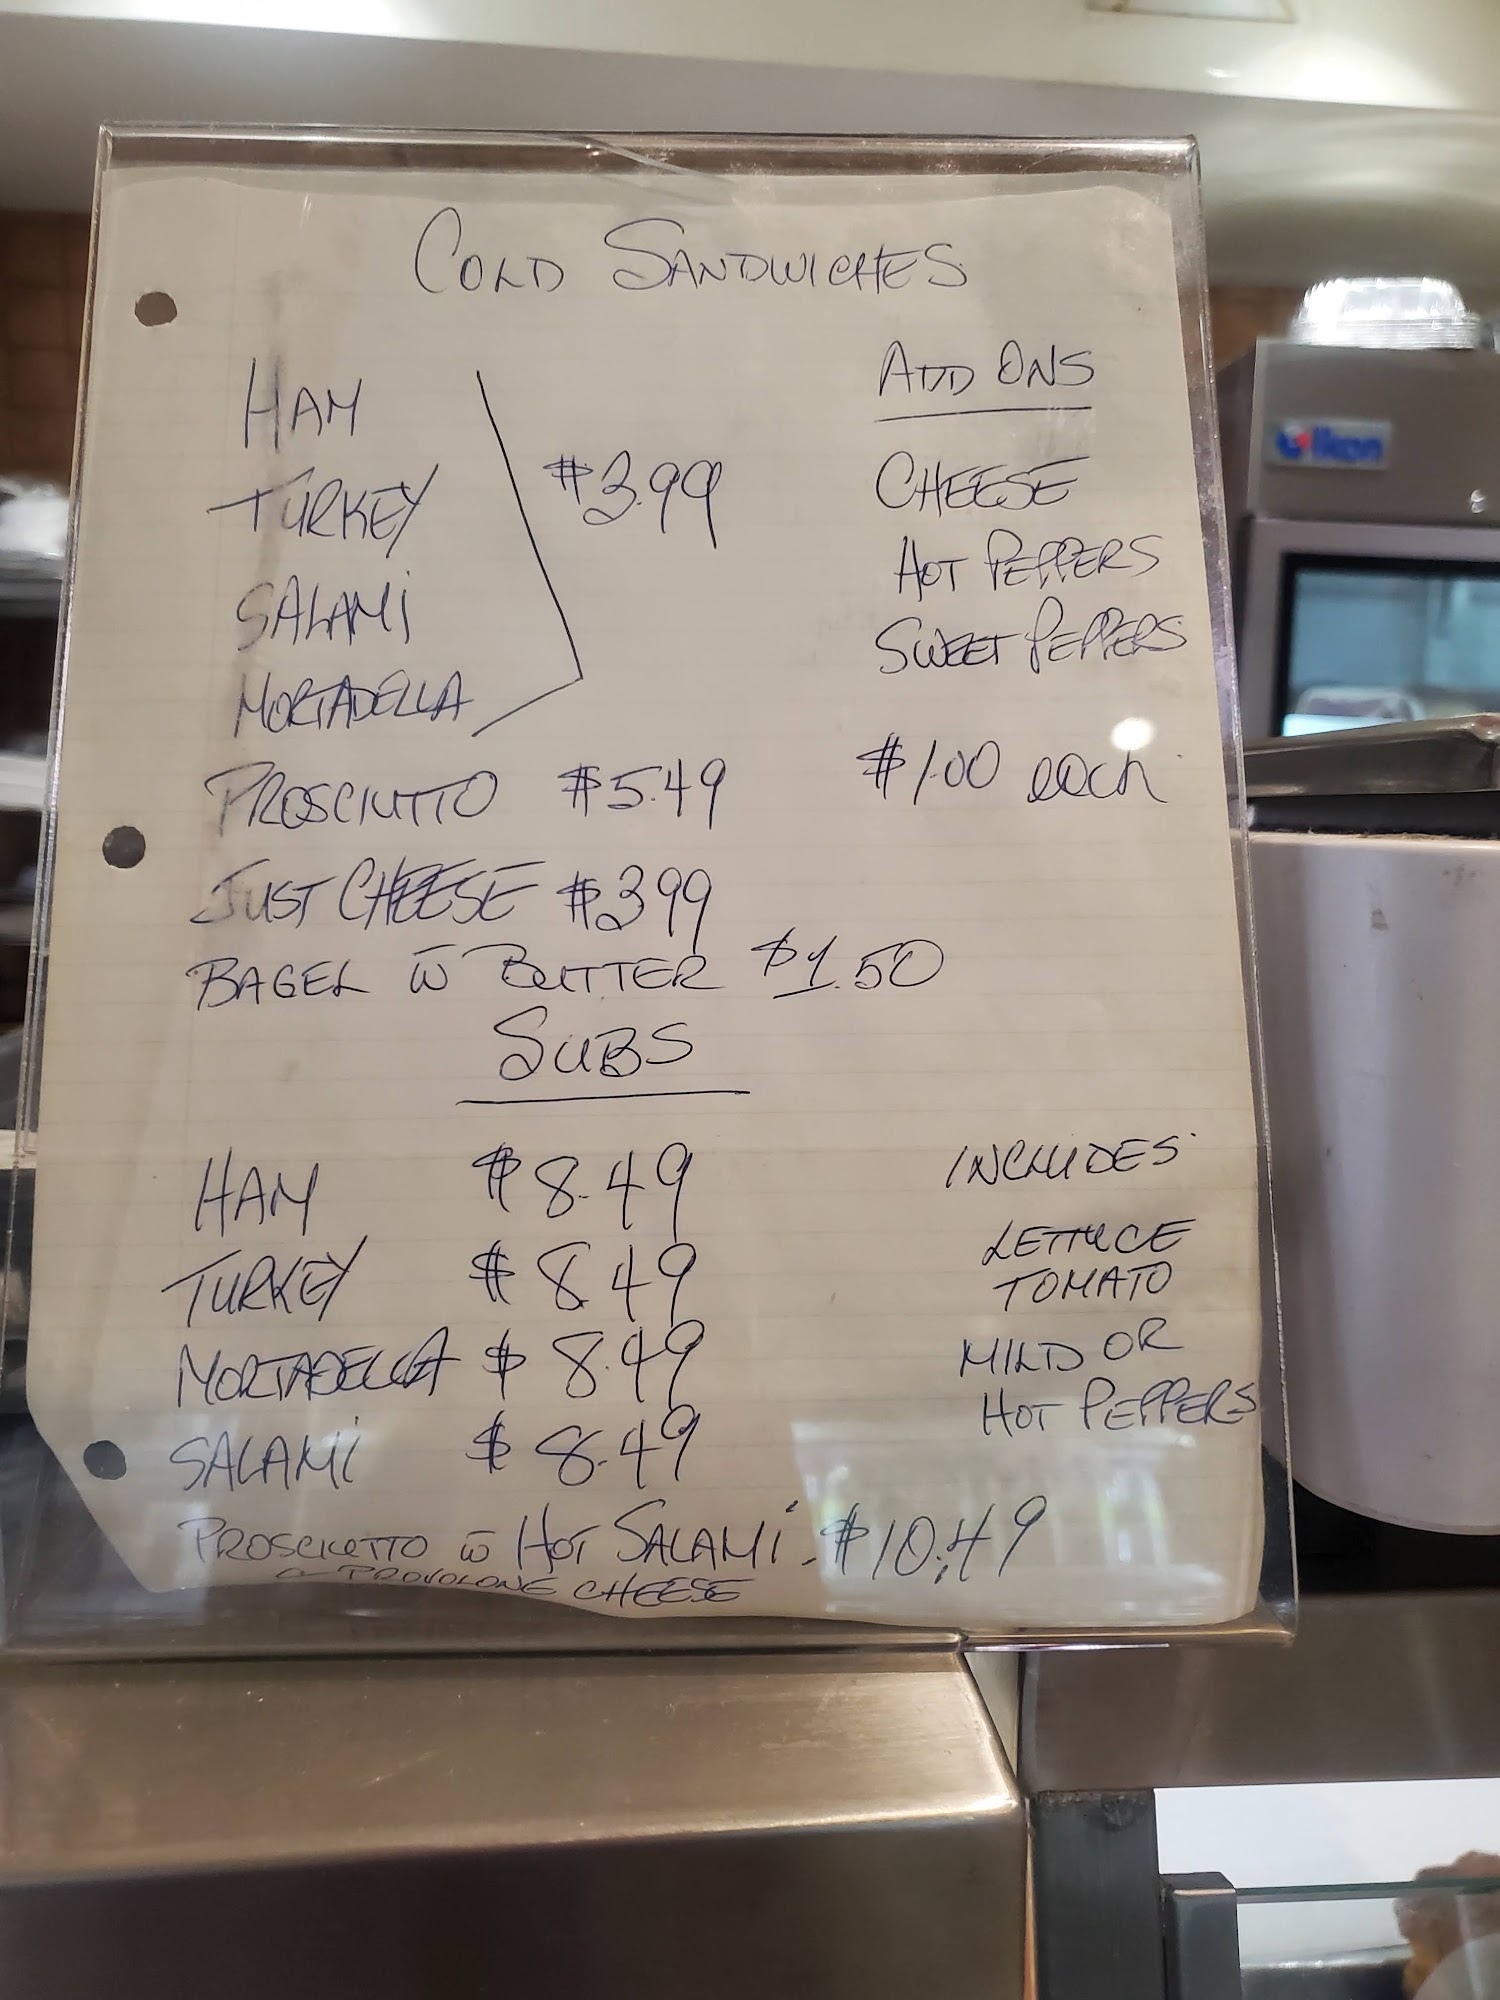 COLD SANDWICHES
HAM
TURKEY
SALAMi
MORTADELLA
$3.99
PROSCIUTTO $5.49
JUST CHEESE $3.99
BAGEL w̄ BUTTER $1.50
ADD ONS
CHEESE
HOT PEPPERS
SWEET PEPPERS
$1.00 each
SUBS
HAM $8.49
TURKEY $8.49
MORTADELLA $8.49
SALAMi $8.49
PROSCIUTTO w̄ HOT SALAMi - $10.49
PROVOLONE CHEESE
INCLUDES
LETTUCE
TOMATO
MILD OR
HOT PEPPERS
ikon